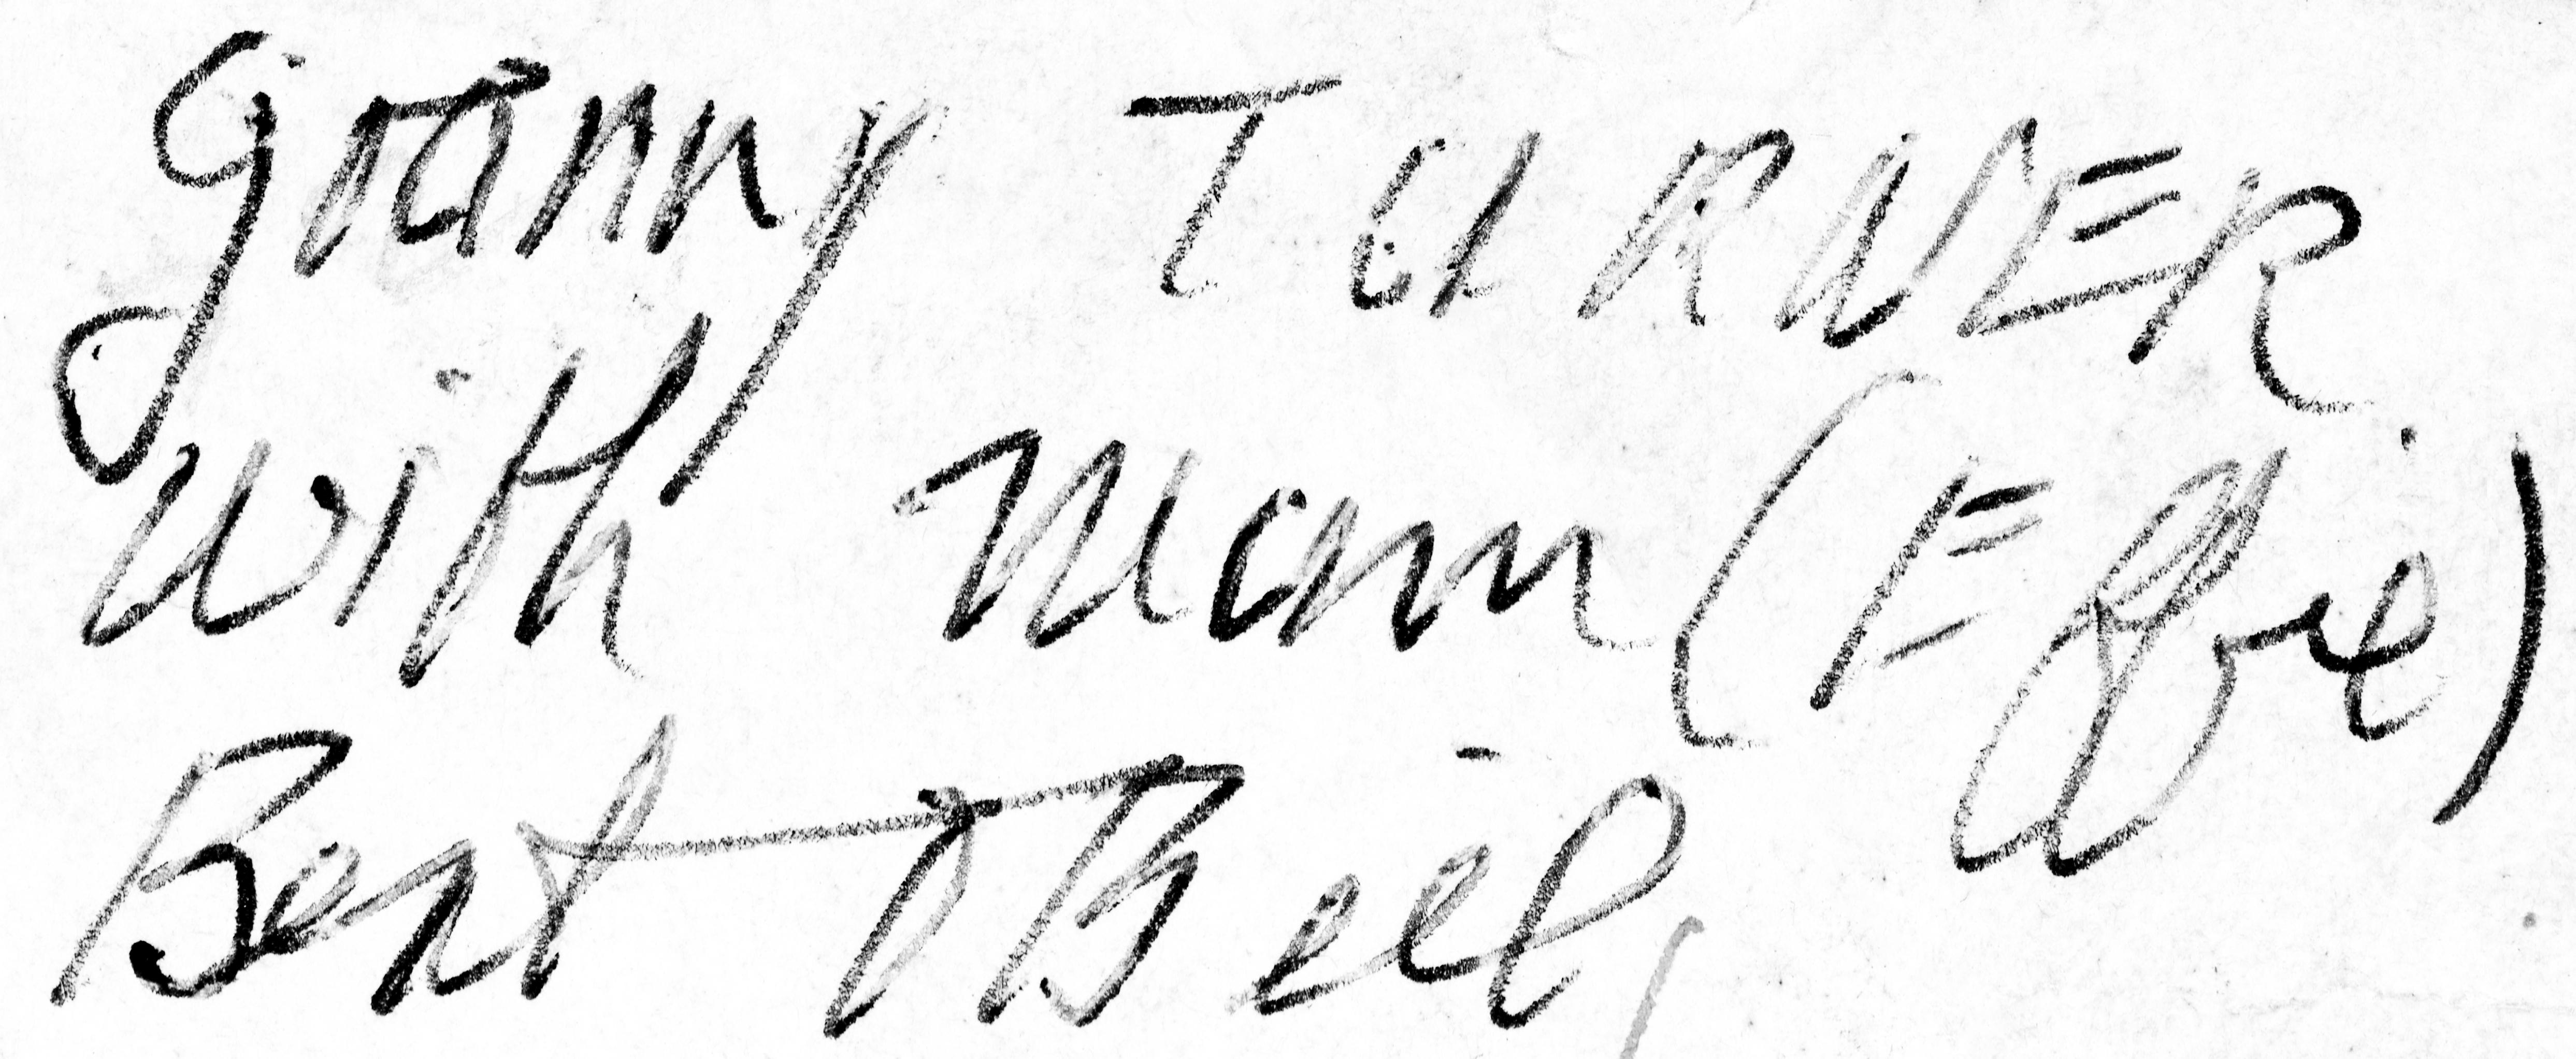 Granny TURNER
with Mum (Effie)
Bert